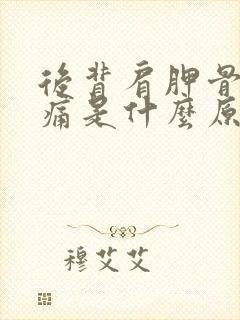 後背肩胛骨
痛是什麼原
穆艾艾